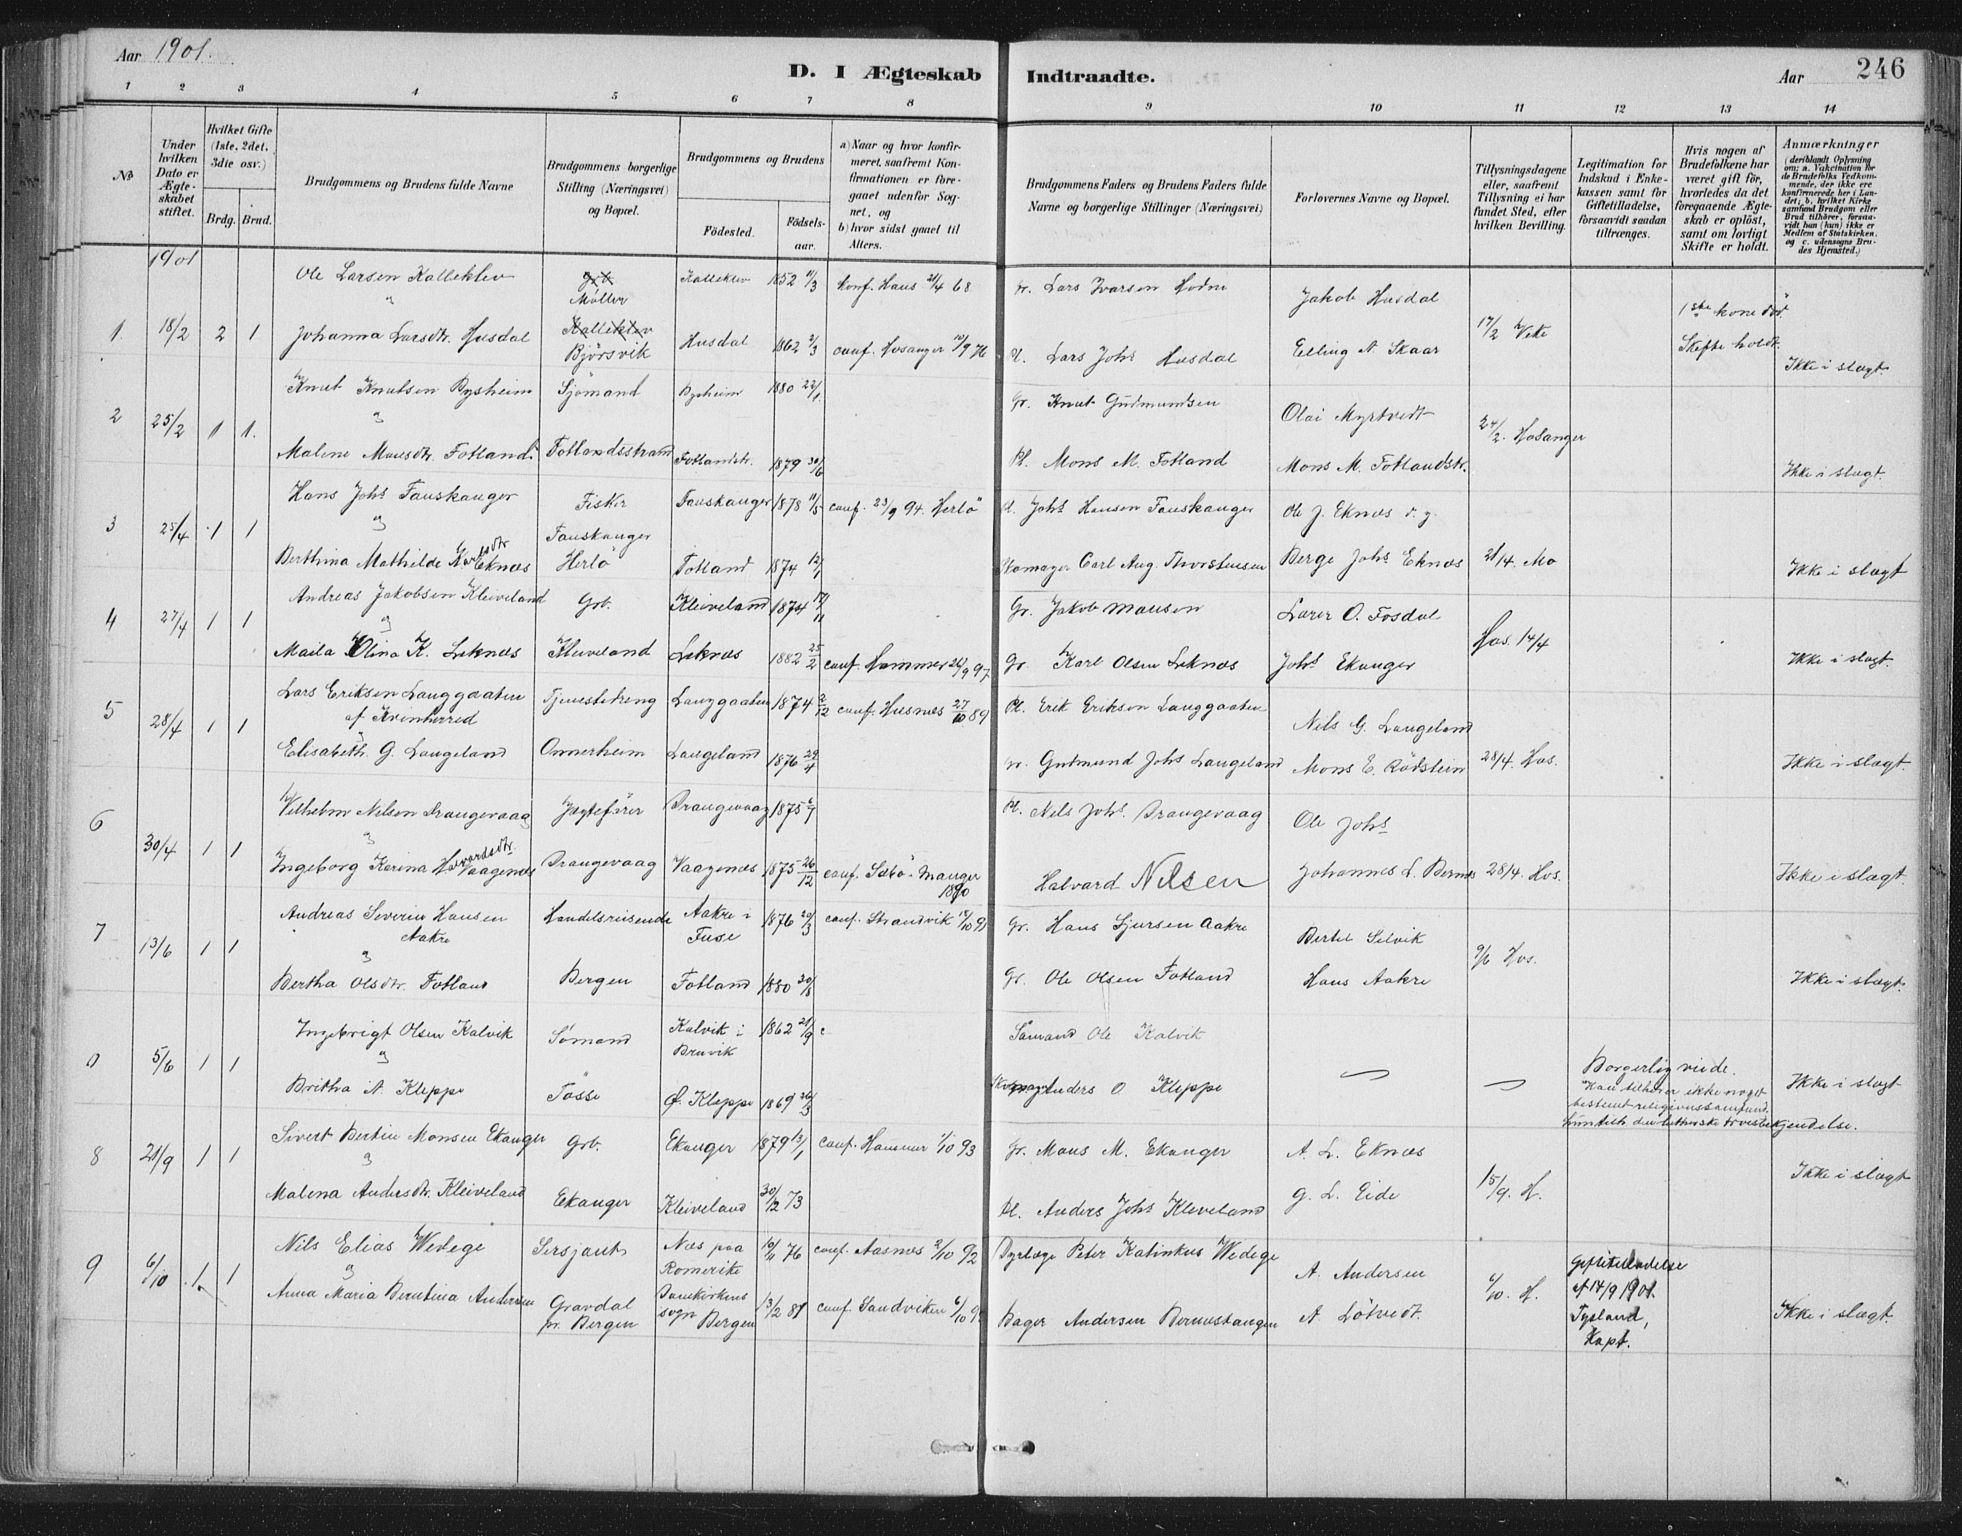 Aar 1901.
D. I Ægteskab Indtraadte.
Aar 246
1 2 3 4 5 6 7 8 9 10 11 12 13 14
No
Under hvilken Dato er Ægteskabet stiftet.
Hvilket Gifte (1ste, 2det, 3die osv.)
Brdg. Brud.
Brudgommens og Brudens fulde Navne
Brudgommens borgerlige Stilling (Næringsvei) og Bopæl.
Brudgommens og Brudens
Födested. Födselsaar.
a) Naar og hvor konfirmeret, saafremt Konfirmationen er foregaaet udenfor Sognet, og
b) hvor sidst gaaet til Alters.
Brudgommens Faders og Brudens Faders fulde Navne og borgerlige Stillinger (Næringsvei)
Forlovernes Navne og Bopæl.
Tillysningsdagene eller, saafremt Tillysning ei har fundet Sted, efter hvilken Bevilling.
Legitimation for Indskud i Enkekassen samt for Giftetilladelse, forsaavidt saadan tiltrænges.
Hvis nogen af Brudefolkene har været gift før, hvorledes da det foregaaende Ægteskab er oplöst, samt om lovligt Skifte er holdt.
Anmærkninger
(deriblandt Oplysning om: a. Vakcination for de Brudefolks Vedkommende, der ikke ere konfirmerede her i Landet; b. hvilket Kirkesamfund Brudgom eller Brud tilhører, forsaavidt han (hun) ikke er Medlem af Statskirken, og c. udensogns Brudes Hjemsted.)
1901
Ole Larsen Kalleklev Møller Kalleklev 1852 11/3 konf. Haus 21/4 68 Lars Ivarsen Hodne Jakob Husdal 1ste kone död
1 18/2 2 1 Johanna Larsdtr. Husdal Kalleklev Björsvik Husdal 1862 2/3 conf. Hosanger 10/9 76 Pl. Lars Johs Husdal Elling A. Skaar 17/2 Skifte holdt. Ikke i slægt.
Knut Knutsen Bysheim Sjömand Bysheim 1880 22/1 Gr. Knut Gudmundsen Olai Myrtvedt
2 25/2 1 1. Malene Monsdtr. Fotland Fotlandsstrand Fotlandstr. 1879 30/6 Pl. Mons M. Fotland Mons M. Fotlandstr. 24/2. Hosanger Ikke i slægt.
Hans Johs Fauskanger Fisker Fauskanger 1878 11/5 conf. 23/9 94. Herlö Pl. Johs Hansen Fauskanger Ole J. Eknæs
3 25/4 1 1 Fauskanger
Berthina Mathilde Karlsdtr Eknæs Herlö Fotland 1874 12/1 Carl Aug. Thorstensen Berge Johs Eknæs 21/4. Mo Ikke i slægt
Andreas Jakobsen Kleiveland Grb. Kleiveland 1874 12/11 Gr. Jakob Monsen Lærer O. Fosdal
4 27/4 1 1 Olina K. Leknæs Kleiveland Leknæs 1882 25/2 conf. Hammer 26/9 97 Gr. Karl Olsen Leknæs Johs Ekanger Hos. 14/4 Ikke i slægt.
Lars Eriksen Langgaaten Tjenestedreng Langgaaten 1874 2/12 conf. Husnes 27/10 89 Pl. Erik Erikson Langgaaten
5 28/4 1 1 af Kvinherred Nils G. Langeland
Elisabeth G. Langeland Onnerheim Langeland 1876 29/4 Gudmund Johs Langeland Mons E. Rödstein 28/4. Hos. Ikke i slægt.
6 Vilhelm Nilsen Drangevaag Jægtefører Drangevaag 1875 Pl. Nils Johs. Drangevaag Ole Johs
30/4 1 1 Ingeborg Karina Halvardsdtr. Vaagenes Drangevaag Vaagenæs 1875 26/12 conf. Sæbö-Manger 1890 Halvard Nilsen Johannes L. Bernes 28/4. Hos. Ikke i slægt.
7 Andreas Severin Hansen Aakre Handelsreisende Aakre i Fuse 1876 20/3 conf. Strandvik 18/10 91 Gr. Hans Sjursen Aakre Bertel Selvik
13/6 1 1 Bertha Olsdtr. Fotland Bergen Fotland 1880 30/8 Gr. Ole Olsen Fotland Hans Aakre 9/6 Hos. Ikke i slægt.
Ingebrigt Olsen Kalvik Sømand Kalvik i Bruvik 1862 21/9 Sømand Ole Kalvik
0 5/6 1 1 Britha A. Kleppe Tösse Ø. Kleppe 1869 26/3 Anders O Kleppe Borgerlig viede. Han tilhører ikke noget bestemt religionssamfund. Hun tilh. den lutherske trosbekjendelse. Ikke i slægt
Sivert Bertin Monsen Ekanger Grb. Ekanger 1879 13/1 conf. Hammer 1/10 93 Gr. Mons M. Ekanger A. L. Eknæs
8 21/9 1 1 Malena Andersdtr. Kleiveland Ekanger Kleiveland 30/12 73 Pl. Anders Johs Kleveland G. L. Eide 15/9. H. Ikke i slægt
Nils Elias Wedege Sersjant Næs paa Romerike 10/11 76 conf. Aasnæs 2/10 92 Dyrlæge Peter Katinkus Wedege A. Andersen
9 6/10 1 1 Anna Maria Berntina Andersen Gravdal pr. Bergen Domkirkens sogn Bergen 13/2 81 conf. Sandviken 6/10 95 Bager Andersen Bernestangen A Lötvedt. 6/10. H. Giftetilladelse af 14/9 1901. Tysland, Kapt. Ikke i slægt.